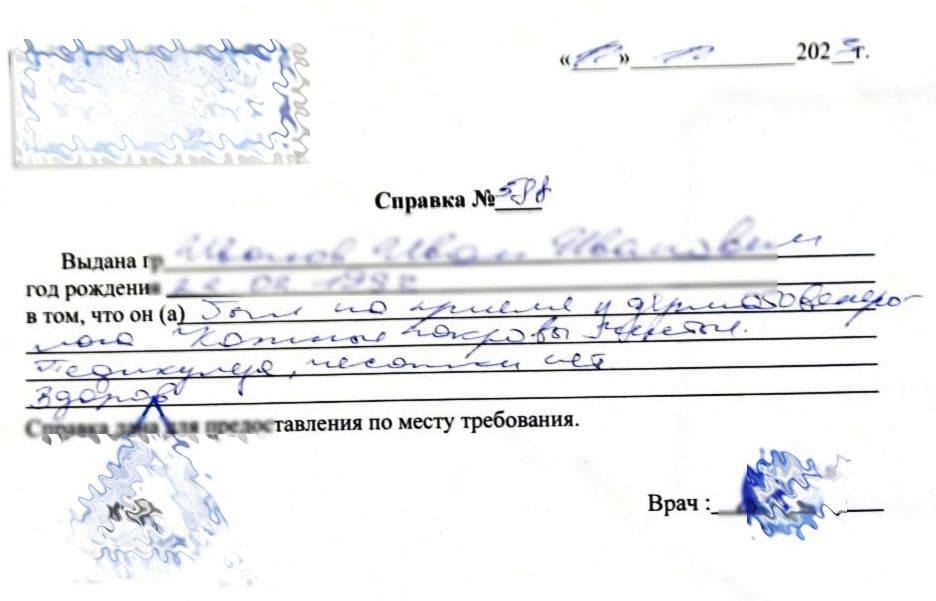 « » 202 г.
Справка № 598
Выдана гр Иванов Иван Иванович
год рождения
в том, что он (а) был на приеме у дерматовенеро-
лога Кожные покровы чистые.
Педикулеза, чесотки нет
Здоров
Справка дана для предоставления по месту требования.
Врач :